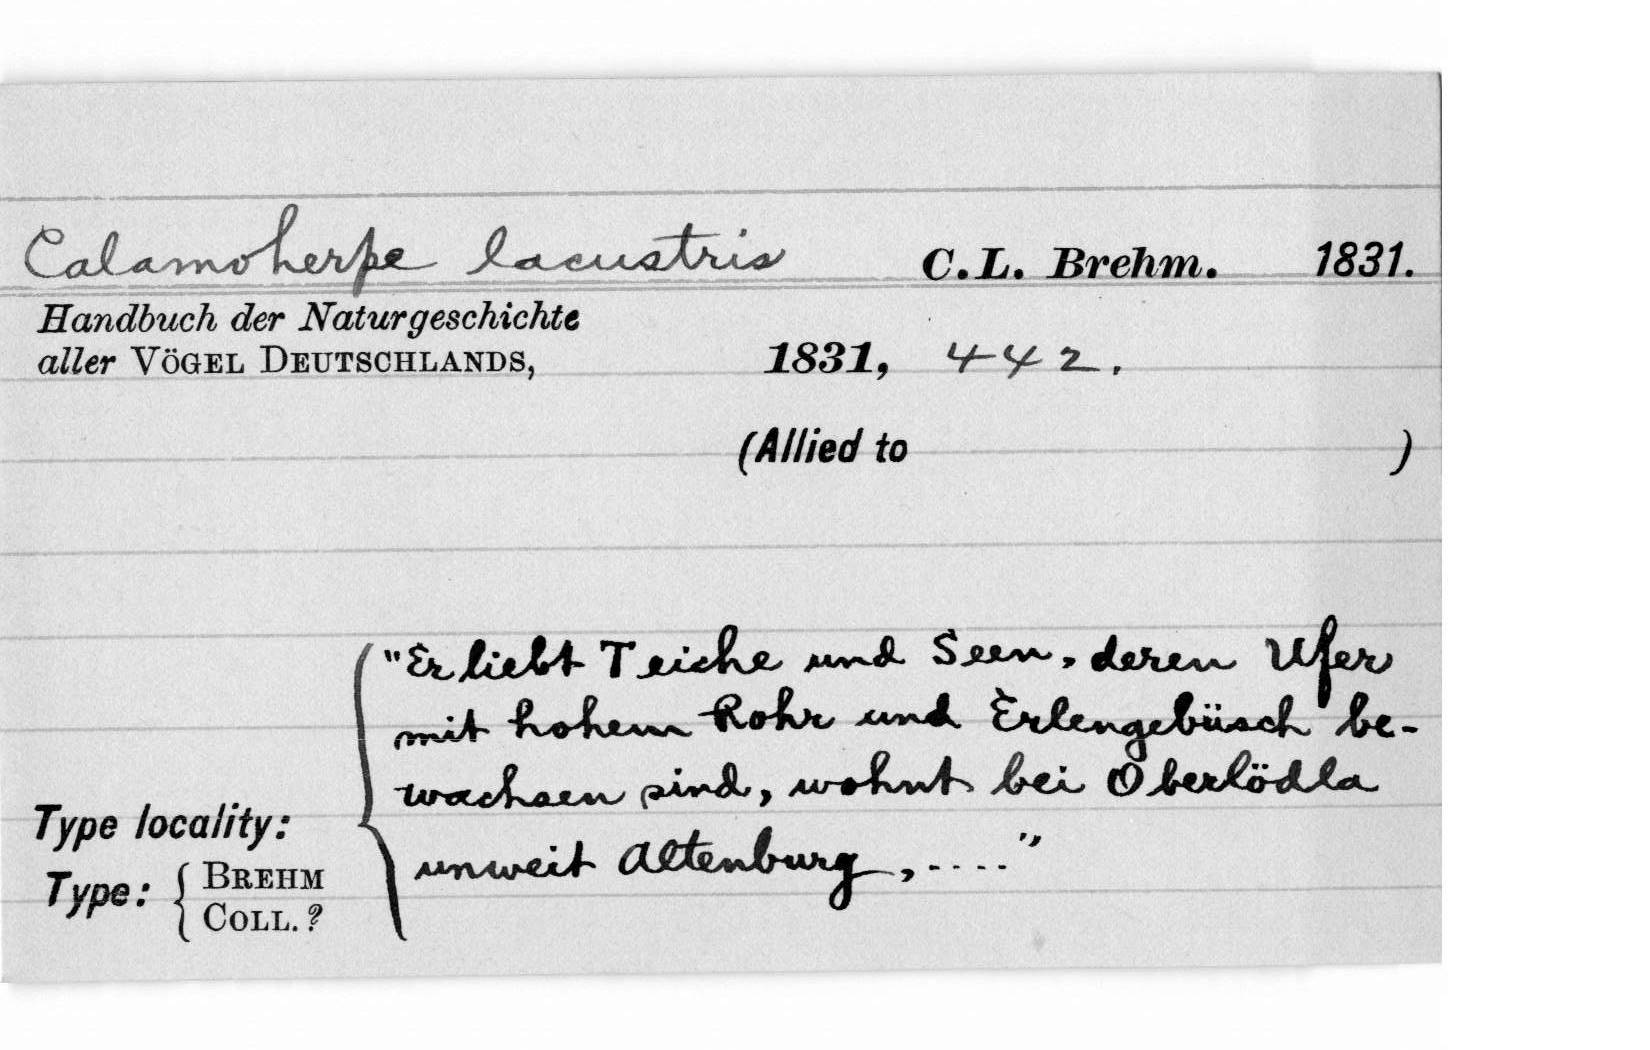 Calamoherpe lacustris C.L. Brehm. 1831.
Handbuch der Naturgeschichte
aller VÖGEL DEUTSCHLANDS, 1831, 442.
(Allied to )
"Er liebt Teiche und Seen, deren Ufer
mit hohem Rohr und Erlengebüsch be-
wachsen sind, wohnt bei Oberlödla
unweit Altenburg, ...."
Type locality:
Type: { BREHM
COLL. ?